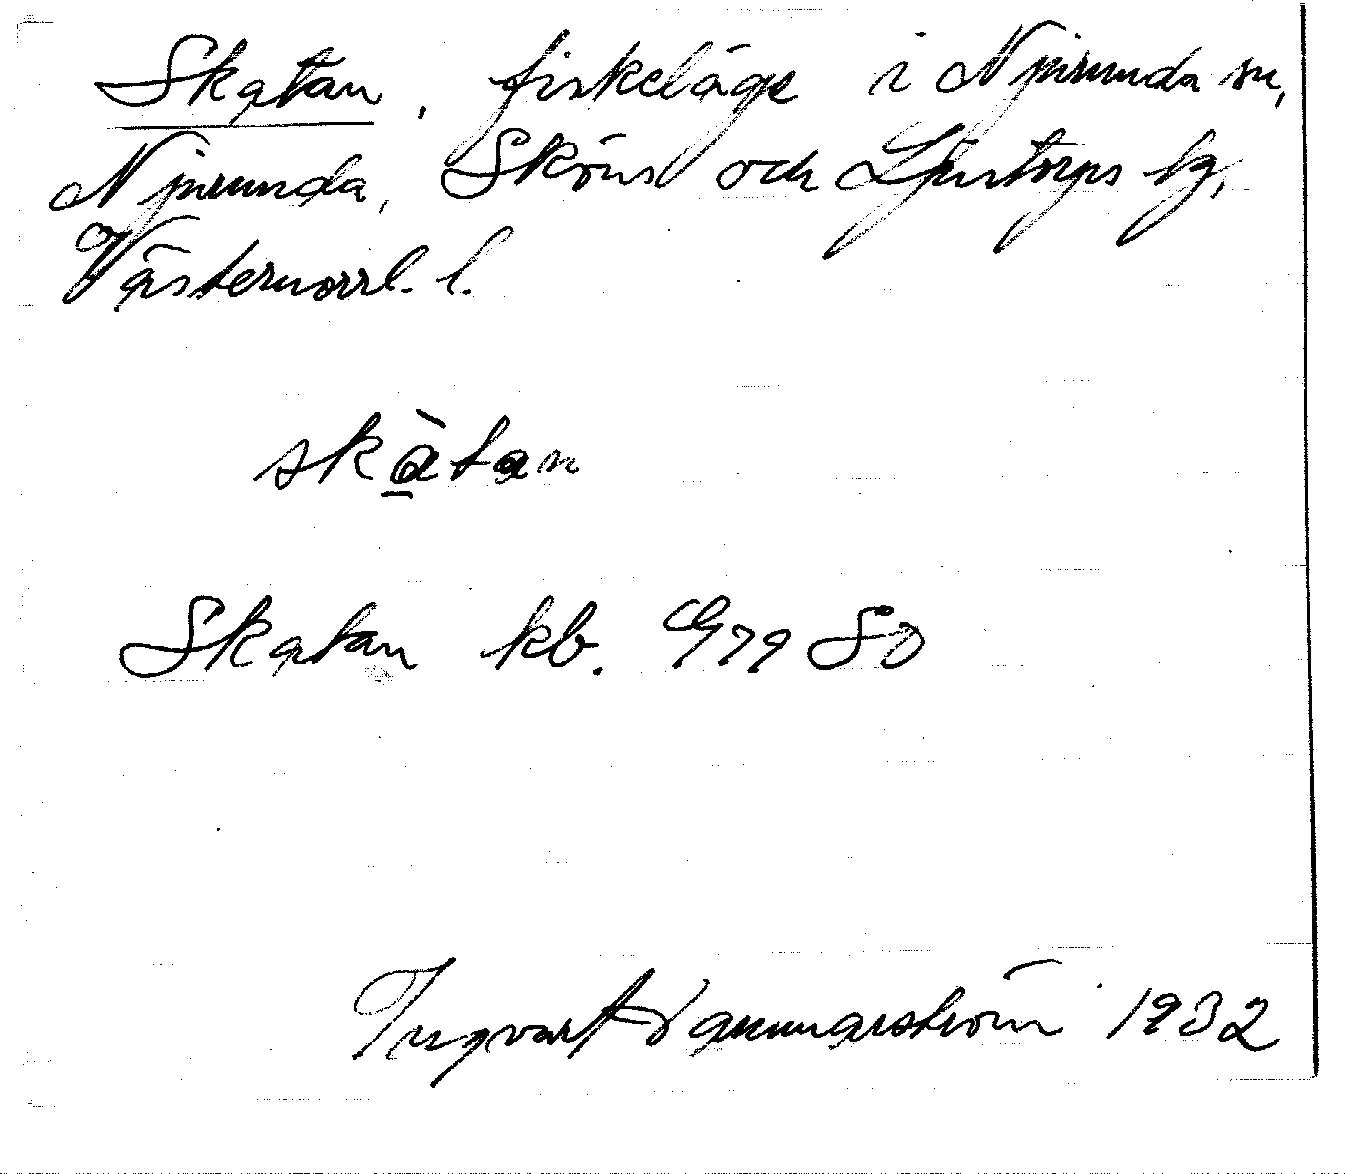 Skatan, fiskeläge i Njurunda sn,
Njurunda, Sköns och Ljustorps tg,
Västernorrl. l.
skàtan
Skatan kb. G 79 SO
Ingvar Hammarström 1932